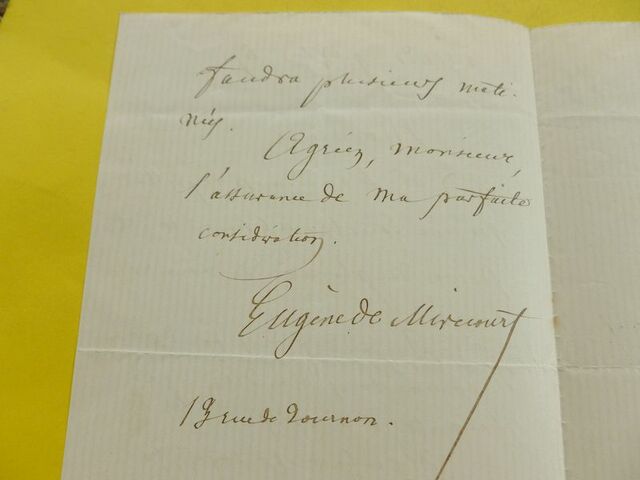 faudra plusieurs mati-
nées.
Agréez, monsieur,
l'assurance de ma parfaite
considération.
Eugène de Mirecourt
13 rue de Tournon.